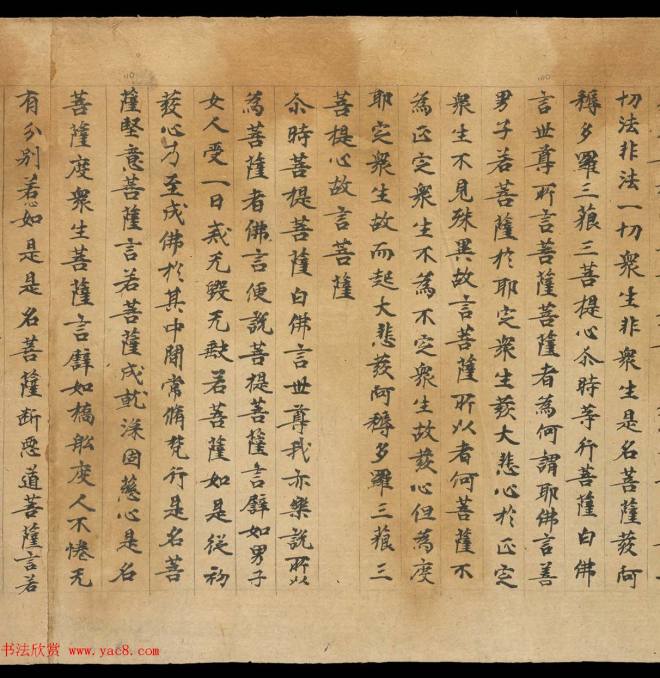 切法非法一切衆生非衆生是名菩薩發阿
耨多羅三藐三菩提心尒時等行菩薩白佛
言世尊所言菩薩菩薩者為何謂耶佛言善
男子若菩薩於耶定衆生發大悲心於正定
衆生不見殊異故言菩薩所以者何菩薩不
為正定衆生不為不定衆生故發心但為度
耶定衆生故而起大悲發阿耨多羅三藐三
菩提心故言菩薩
尒時菩提菩薩白佛言世尊我亦樂說所以
為菩薩者佛言便說菩提菩薩言譬如男子
女人受一日戒无毀无䡖若菩薩如是從初
發心乃至成佛於其中間常脩梵行是名菩
薩堅意菩薩言若菩薩成就深固慈心是名
菩薩度衆生菩薩言譬如橋船度人不惓无
有分別若心如是是名菩薩断惡道菩薩言若
书法欣赏 www.yac8.com